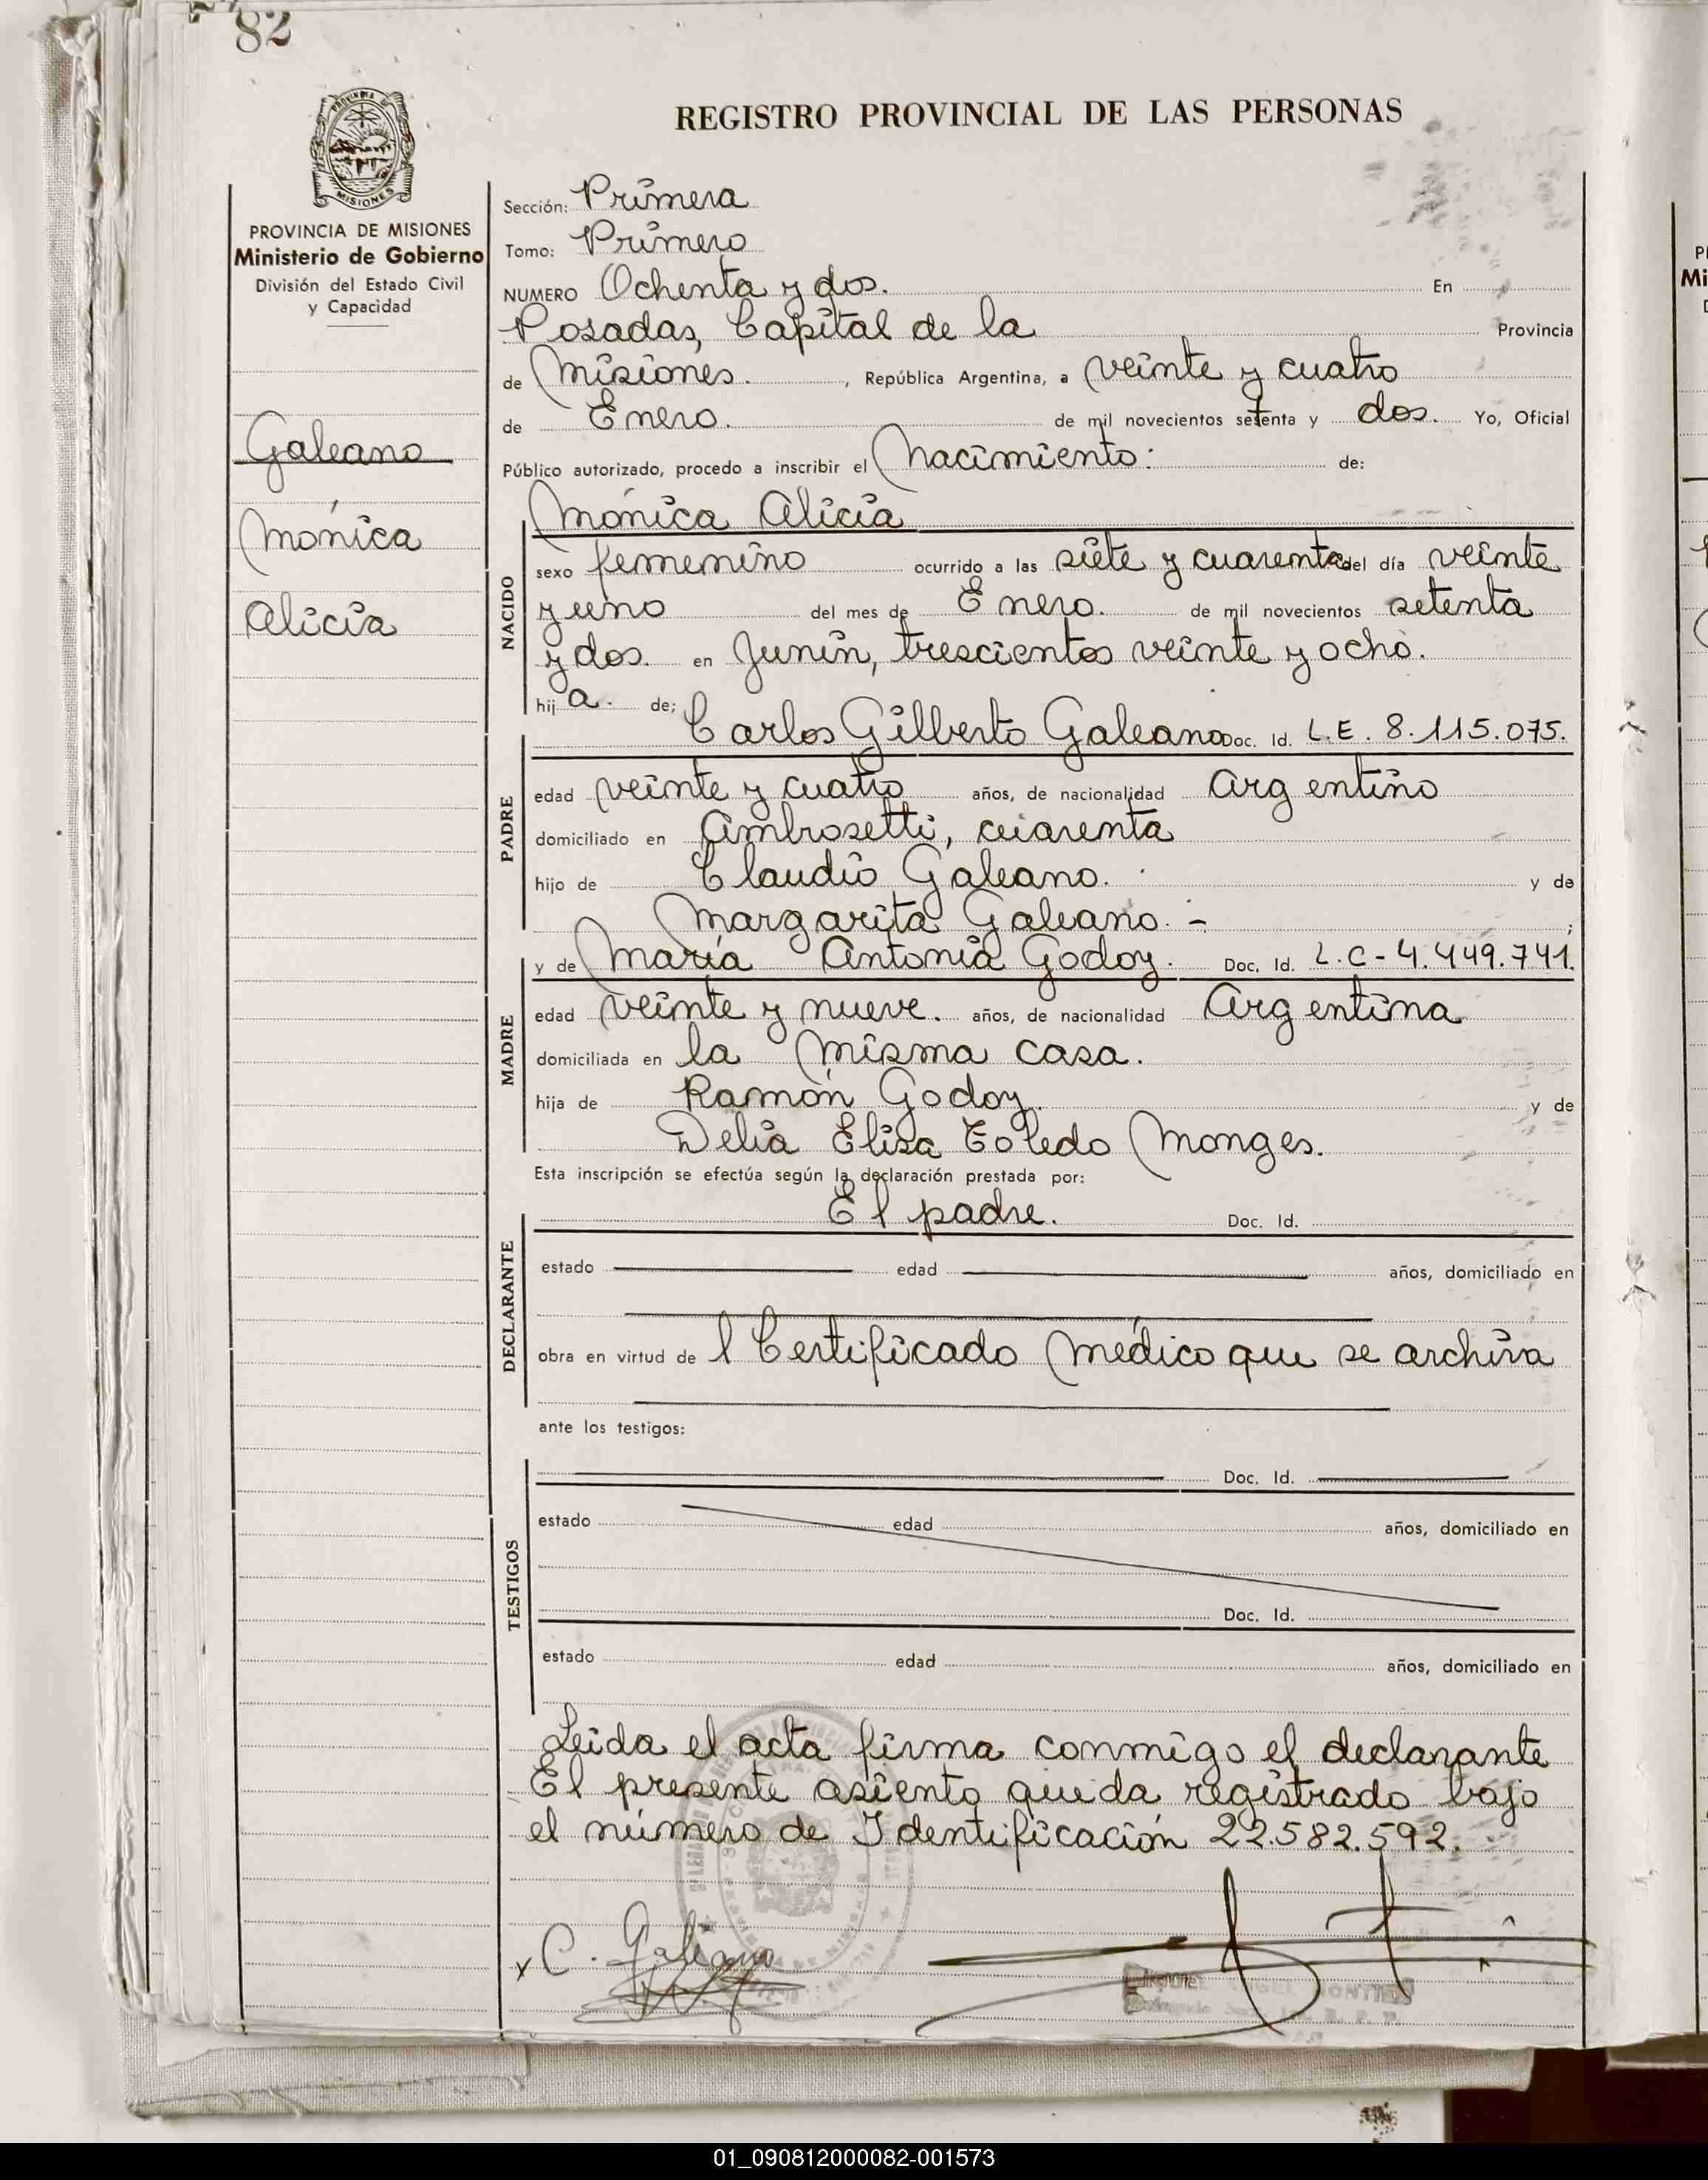 82
REGISTRO PROVINCIAL DE LAS PERSONAS
MISIONES
PROVINCIA DE MISIONES
Ministerio de Gobierno
División del Estado Civil
y Capacidad
Galeano
Mónica
Alicia
Sección: Primera
Tomo: Primero
NUMERO Ochenta y dos. En
Posadas, Capital de la Provincia
de Misiones. , República Argentina, a veinte y cuatro
de Enero. de mil novecientos setenta y dos. Yo, Oficial
Público autorizado, procedo a inscribir el Nacimiento: de:
Mónica Alicia
NACIDO
sexo femenino ocurrido a las siete y cuarenta del día veinte
y uno del mes de Enero. de mil novecientos setenta
y dos. en Junín, trescientos veinte y ocho.
hij a. de:
Carlos Gilberto Galeano Doc. Id. L.E. 8.115.075.
PADRE
edad veinte y cuatro años, de nacionalidad Argentino
domiciliado en Ambrosetti, cuarenta
hijo de Claudio Galeano. y de
Margarita Galeano. - ;
y de María Antonia Godoy. Doc. Id. L.C - 4.449.741.
MADRE
edad veinte y nueve. años, de nacionalidad Argentina
domiciliada en la misma casa.
hija de Ramón Godoy. y de
Delia Elisa Toledo Monges.
Esta inscripción se efectúa según la declaración prestada por:
El padre. Doc. Id.
DECLARANTE
estado edad años, domiciliado en
obra en virtud de l Certificado médico que se archiva
ante los testigos:
Doc. Id.
TESTIGOS
estado edad años, domiciliado en
Doc. Id.
estado edad años, domiciliado en
Leida el acta firma conmigo el declarante
El presente asiento queda registrado bajo
el número de Identificación 22.582.592.
x C. Galeano
01_090812000082-001573